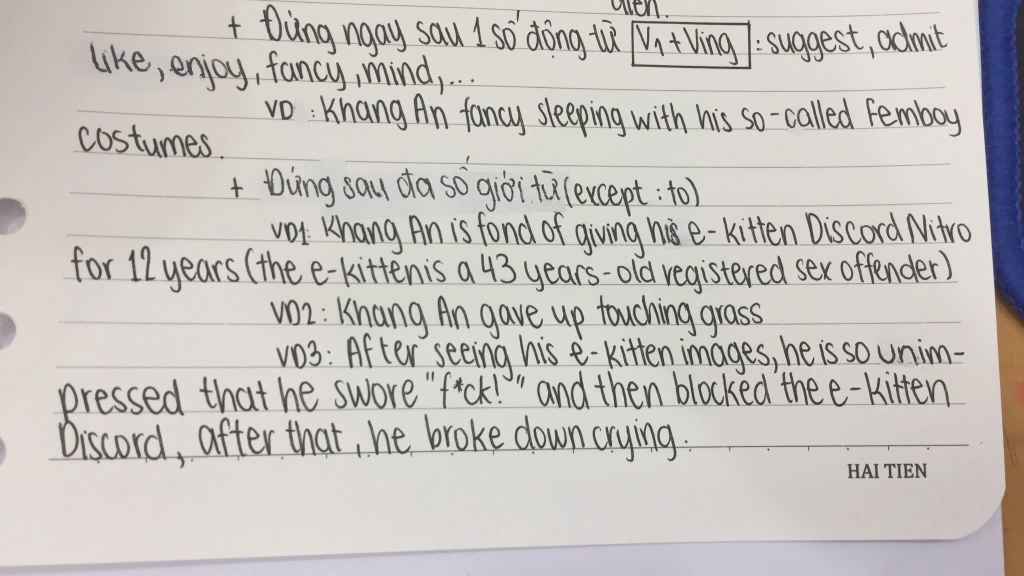 diễn.
+ Đứng ngay sau 1 số động từ V₁ + Ving : suggest, admit
like, enjoy, fancy, mind,...
VD : Khang An fancy sleeping with his so-called Femboy
costumes.
+ Đứng sau đa số giới từ (except : to)
VD1: Khang An is fond of giving his e-kitten Discord Nitro
for 12 years (the e-kitten is a 43 years-old registered sex offender)
VD2: Khang An gave up touching grass
VD3: After seeing his e-kitten images, he is so unim-
pressed that he swore "f*ck!" and then blocked the e-kitten
Discord, after that, he broke down crying.
HAI TIEN